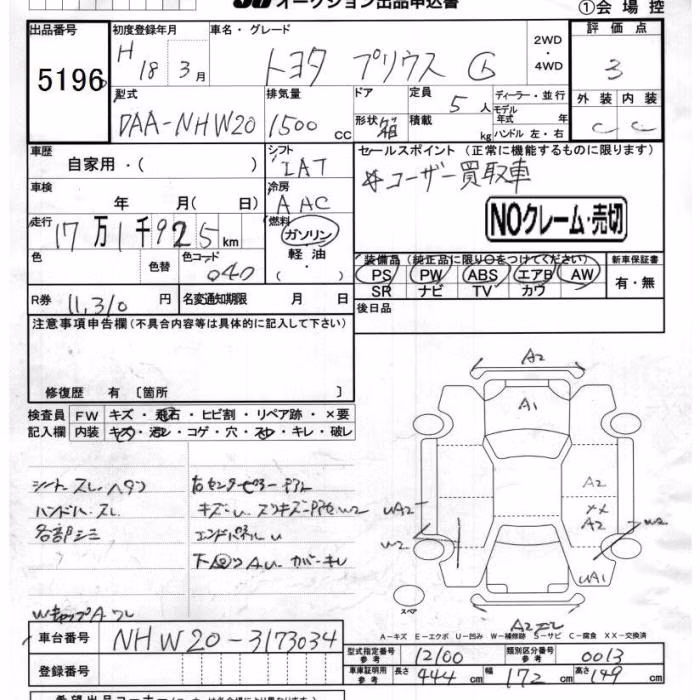 オークション出品申込書
①会場控
出品番号
5196
初度登録年月
H 18年 3月
車名・グレード
トヨタ プリウス G
2WD
・
4WD
評価点
3
型式
DAA-NHW20
排気量
1500 cc
ドア
形状 箱
定員 5人
積載 kg
ディーラー・並行
モデル年式 年
ハンドル 左・右
外装 内装
C C
車歴
自家用・( )
シフト
IAT
セールスポイント (正常に機能するものに限ります)
ユーザー買取車
NOクレーム・売切
車検
年 月( 日)
冷房
AAC
走行
17万1千925km
燃料
ガソリン
軽油
・
色
色替
色コード
040
装備品 (純正品に限り○をつけてください)
PS PW ABS エアB AW
SR ナビ TV カワ
新車保証書
有・無
R券
11,310円
名変通知期限 月 日
後日品
注意事項申告欄 (不具合内容等は具体的に記入して下さい)
修復歴 有 [箇所 ]
検査員記入欄
FW キズ・飛石・ヒビ割・リペア跡・×要
内装 キズ・汚レ・コゲ・穴・スレ・キレ・破レ
シートスレ ヘタリ
ハンドルスレ
各部シミ
エンドパネルU
下回りAU カバーキレ
A2
A1
A2
XX
A2
UA2
W2
W2
UA1
スペア
A2
WキャップAワレ
A-キズ E-エクボ U-凹み W-補修跡 S-サビ C-腐食 XX-交換済
車台番号
NHW20-3173034
登録番号
型式指定番号 参考 12100
類別区分番号 参考 0013
車庫証明用 参考 長さ 444cm 幅 172cm 高さ 149cm
希望出品コーナー